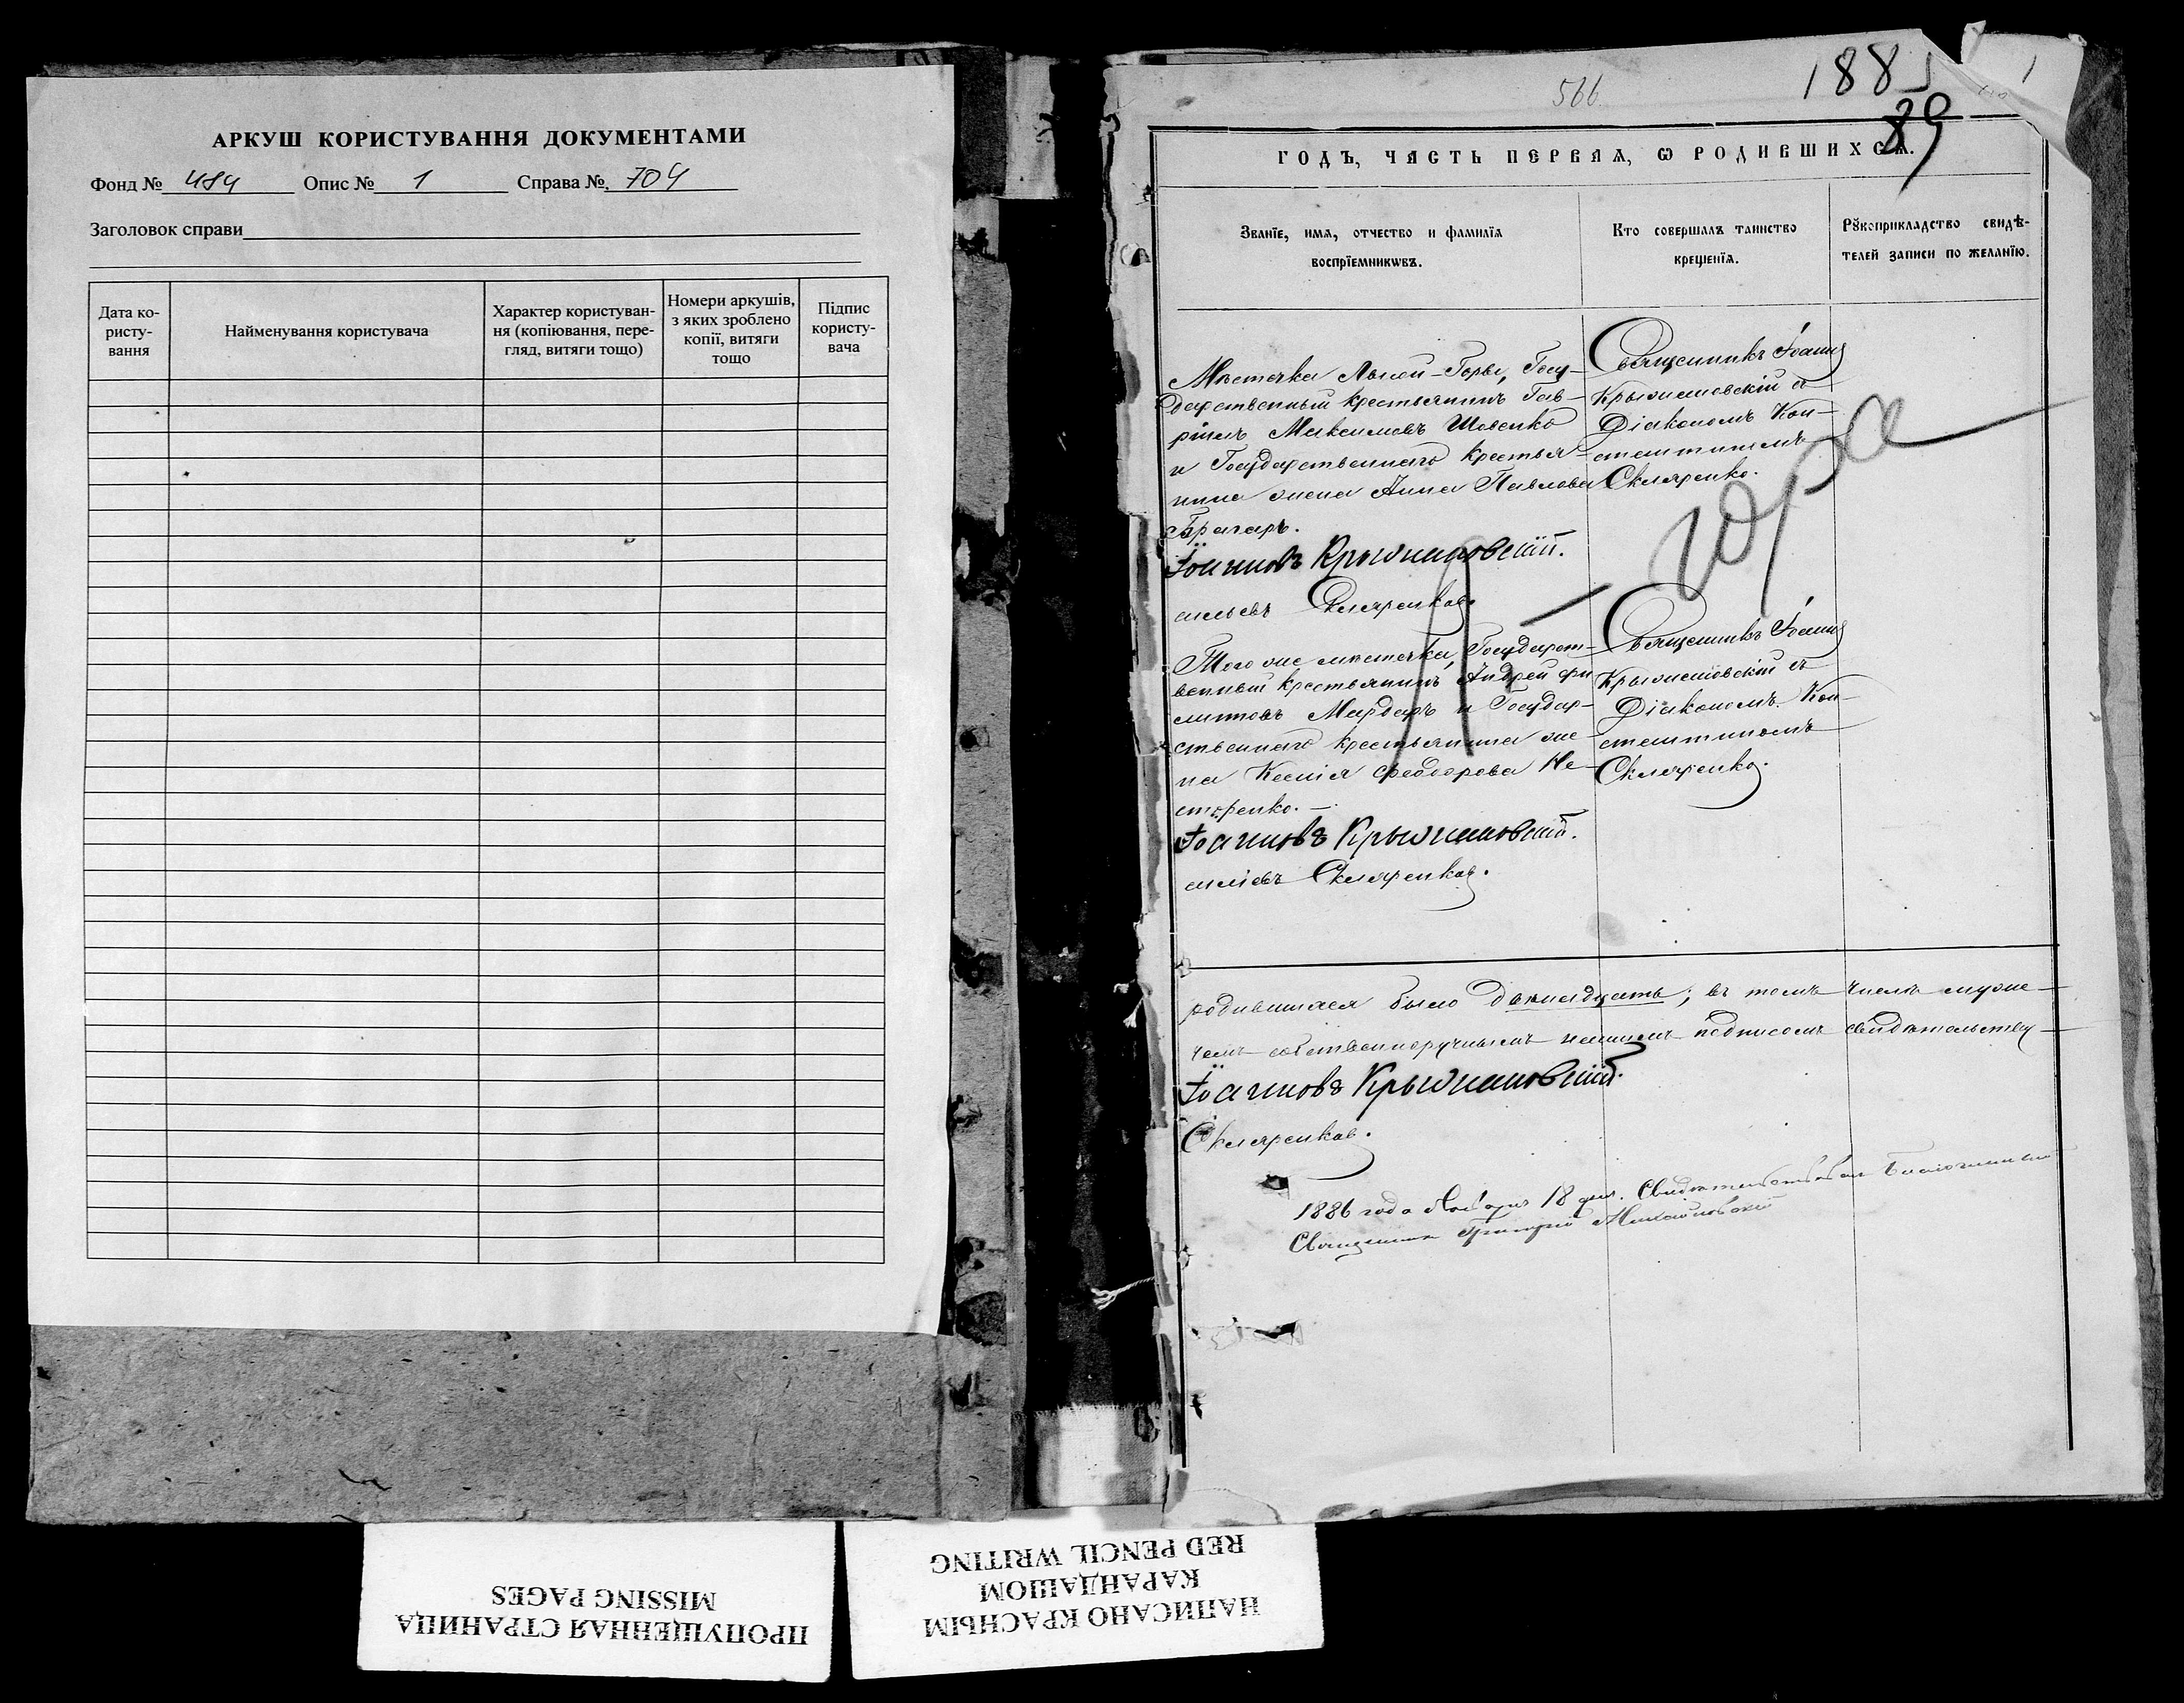 АРКУШ КОРИСТУВАННЯ ДОКУМЕНТАМИ
Фонд № 484 Опис № 1 Справа № 704
Заголовок справи
Дата ко-
ристу-
вання
Найменування користувача
Характер користуван-
ня (копіювання, пере-
гляд, витяги тощо)
Номери аркушів,
з яких зроблено
копії, витяги
тощо
Підпис
користу-
вача
566
188
89
ГОДЪ, ЧАСТЬ ПЕРВАЯ, Ѡ РОДИВШИХСЯ.
Званїе, имя, отчество и фамилїя
воспрїемникѡвъ.
Кто совершалъ таинство
крещенїя.
Рꙋкоприкладство свидѣ-
телей записи по желанїю.
Мѣстечка Лысой-Горы, Госу-
дарственный крестьянинъ Гав-
рiилъ Максимовъ Шовенко
и Государственнаго крестья-
нина жена Анна Павлова
Священникъ Іоаннъ
Крыжановскій съ
Діакономъ Кон-
стантиномъ
Скляренко.
Іоанновъ Крыжановскій.
Скляренковъ.
Того же мѣстечка, Государст-
венный крестьянинъ Андрей Фи
липповъ Мардарь и Государ-
ственнаго крестьянина же-
на Ксенія Феодорова Не-
стеренко.
Священникъ Іоаннъ
Крыжановскій съ
Діакономъ Кон-
стантиномъ
Скляренко.
Іоанновъ Крыжановскій.
Скляренковъ.
родившихся было двѣнадцать; въ томъ числѣ муже-
чемъ собственноручнымъ нашимъ подписомъ свидѣтельству-
Іоанновъ Крыжановскій.
Скляренковъ.
1886 года Ноября 18 дня. Свидѣтельствовал Благочинный
Священник Григорій
ПРОПУЩЕННАЯ СТРАНИЦА
MISSING PAGES
НАПИСАНО КРАСНЫМ
КАРАНДАШОМ
RED PENCIL WRITING